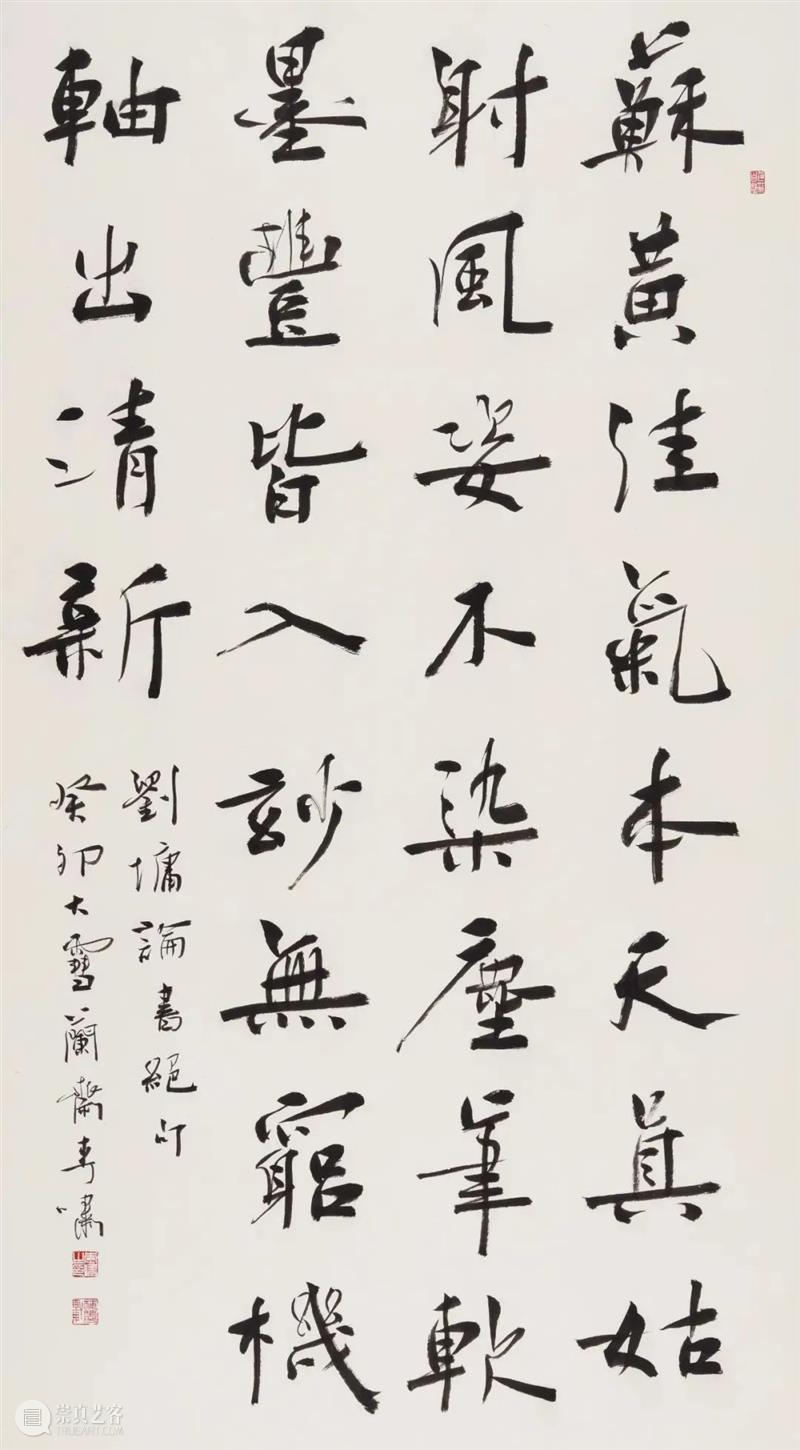 蘇黃佳氣本天真姑
射風姿不染塵筆軟
墨豐皆入妙無窮機
軸出清新
劉墉論書絕句
癸卯大雪蘭齋嘯
崇真艺客